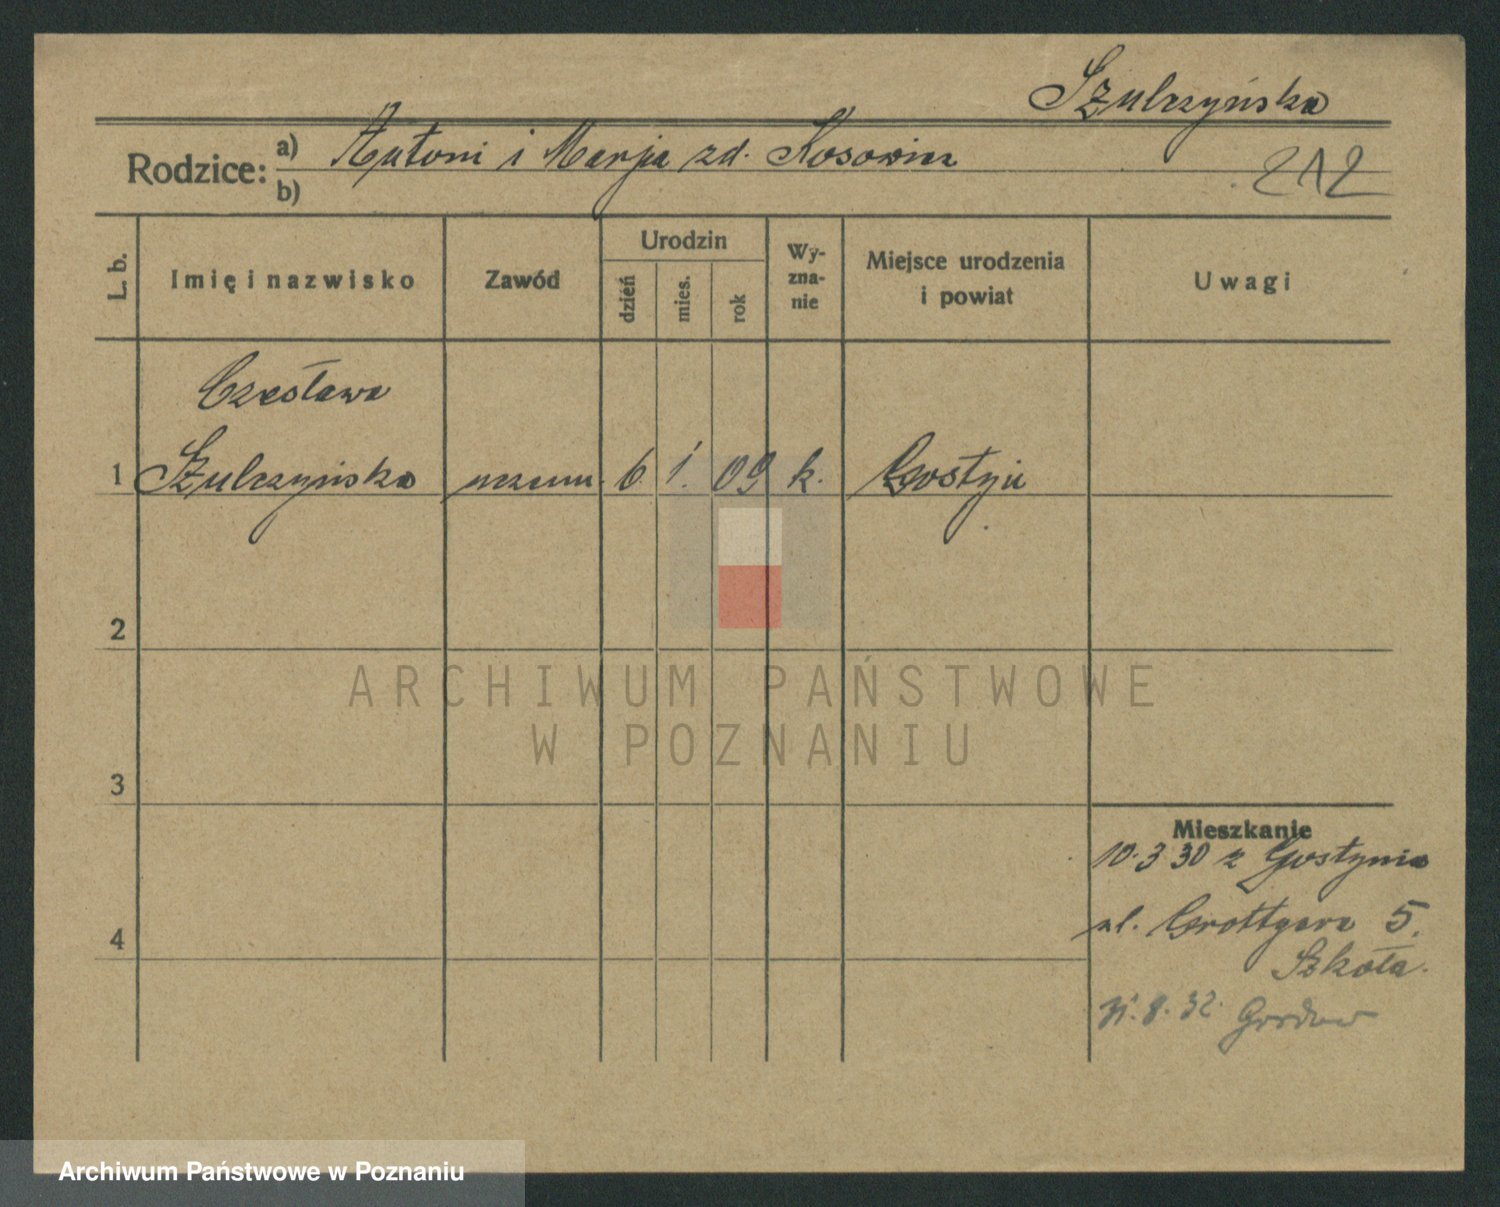 Szulczyńska
Rodzice: a) Antoni i Marja zd. Kosowicz
b)
212
L. b.
Imię i nazwisko
Zawód
Urodzin
dzień
mies.
rok
Wy-
zna-
nie
Miejsce urodzenia
i powiat
Uwagi
Czesława
1 Szulczyńska uczenn. 6. 1. 09 k. Gostyń
2
3
4
Mieszkanie
10.3 30 z Gostynia
ul. Grottgera 5.
Szkoła.
31.8.32.
ARCHIWUM PAŃSTWOWE
W POZNANIU
Archiwum Państwowe w Poznaniu